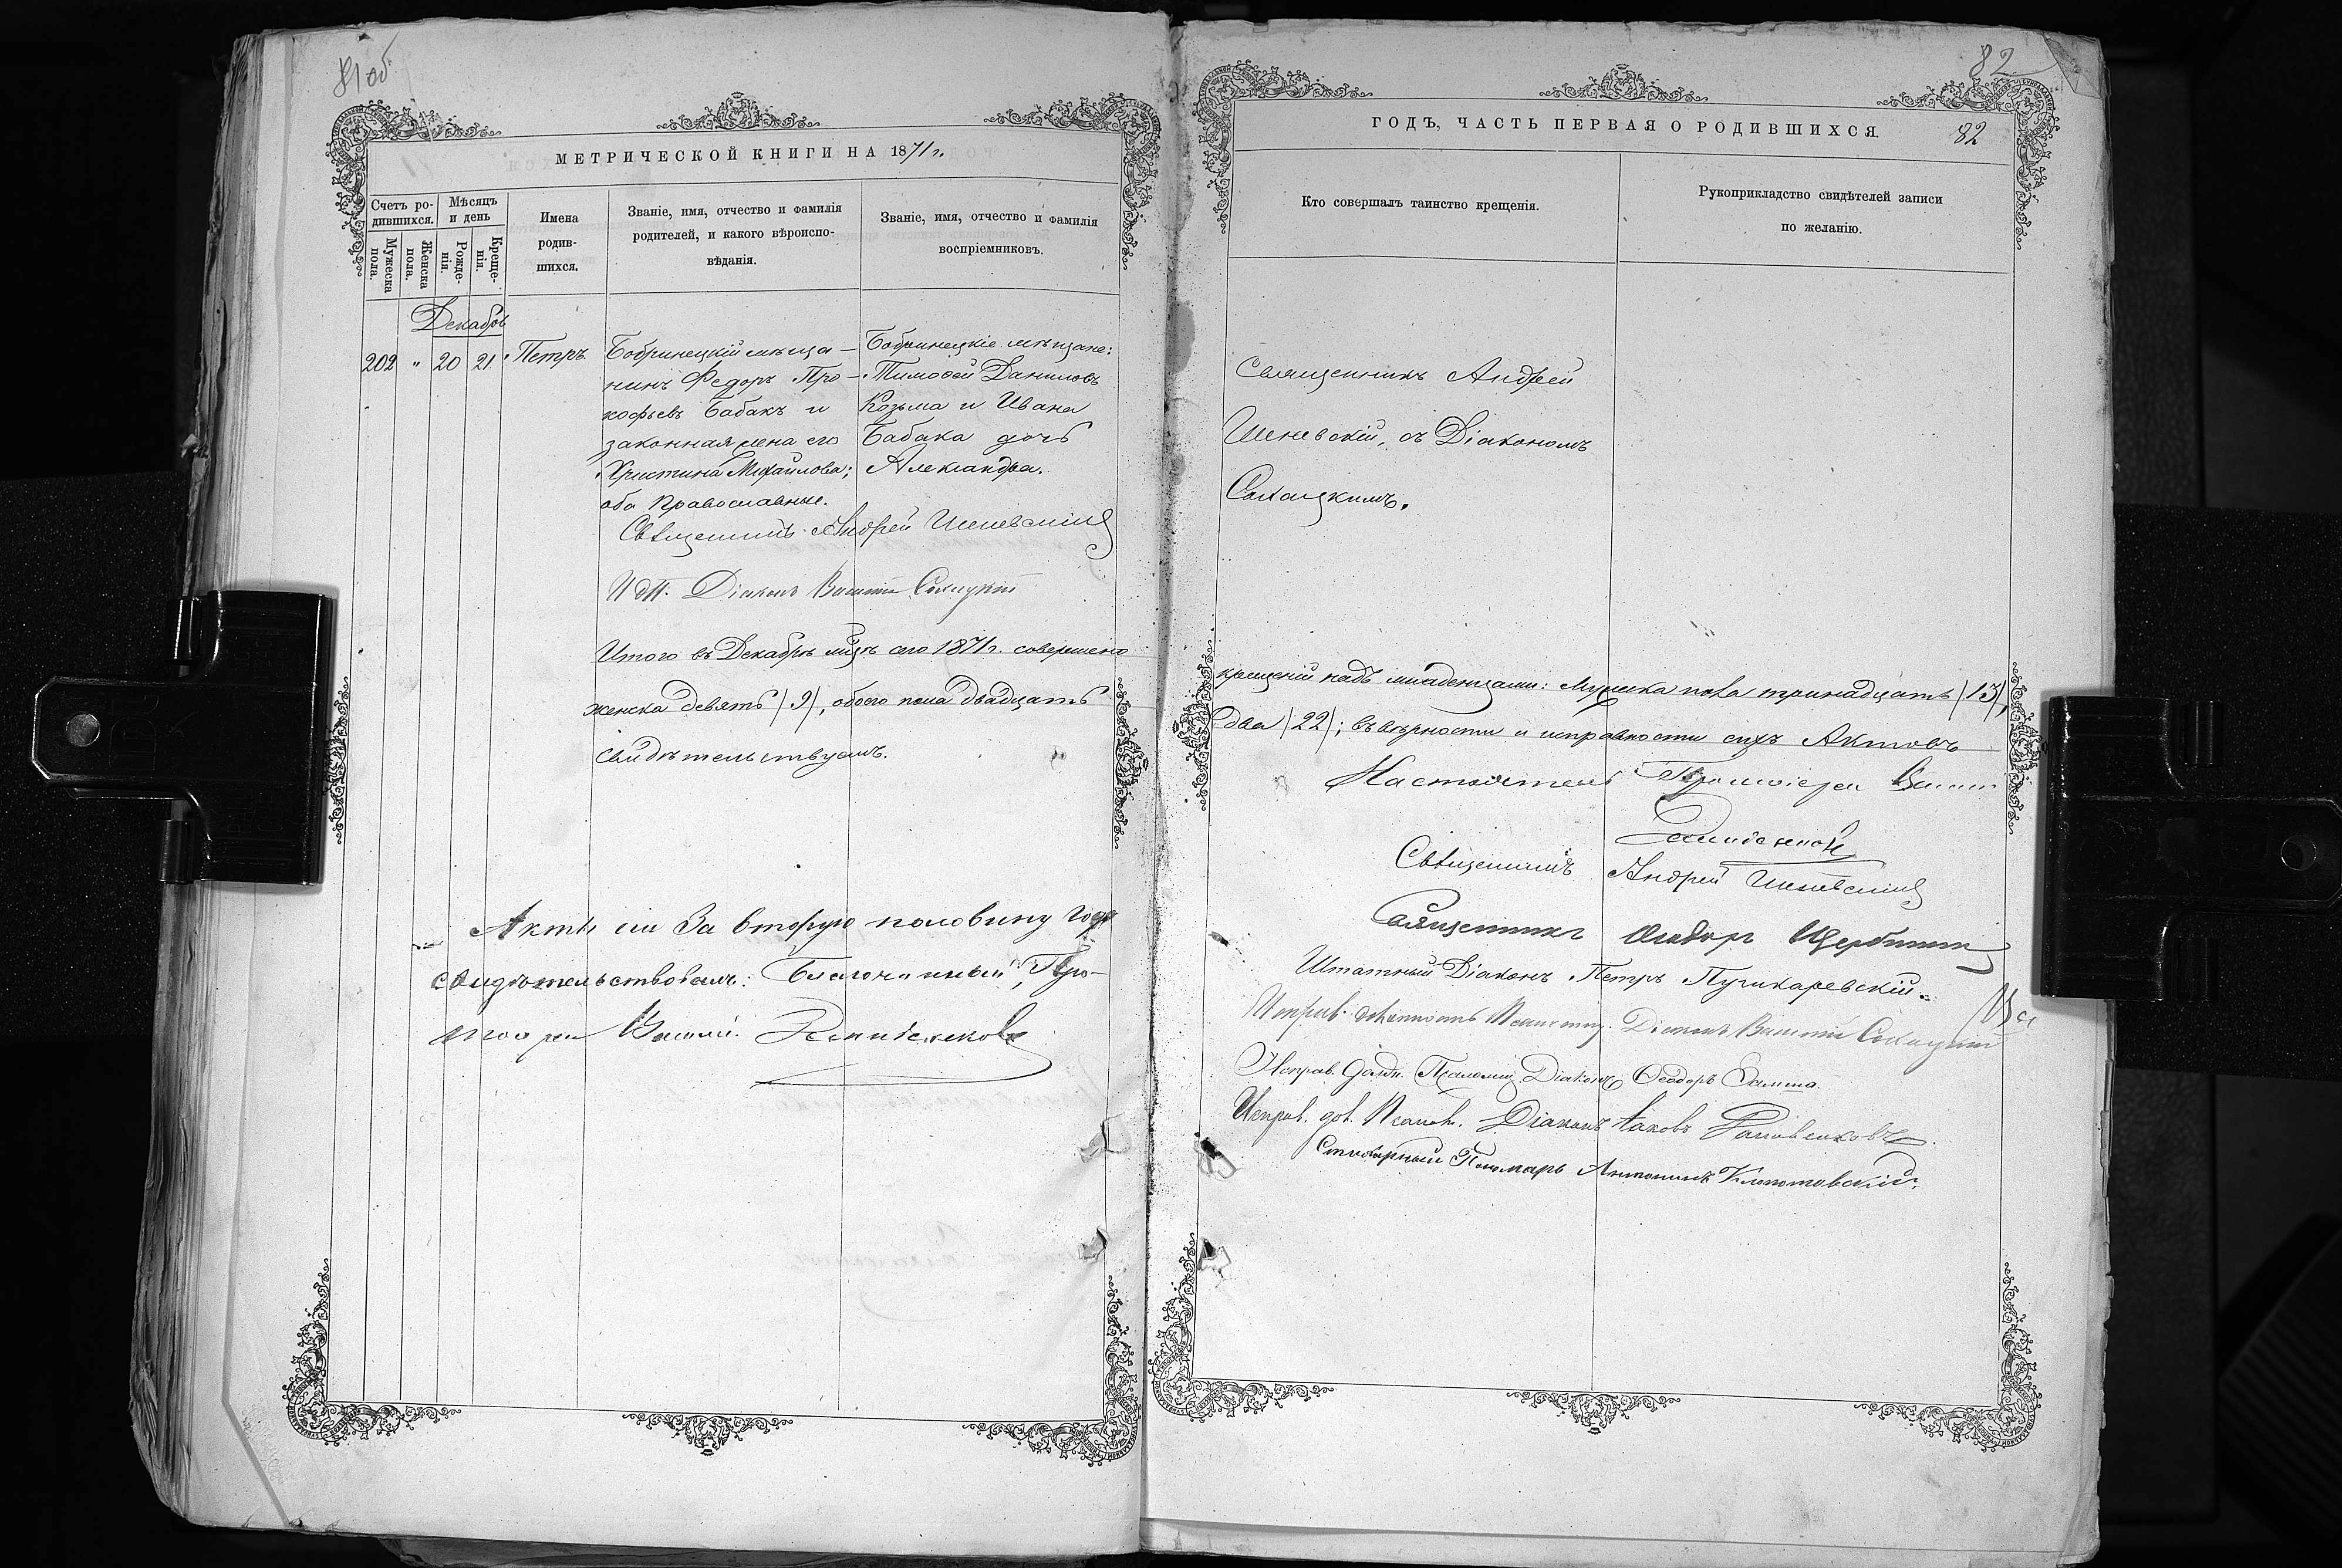 81 об
МЕТРИЧЕСКОЙ КНИГИ НА 1871 г.
Счетъ ро-
дившихся.
Мѣсяцъ
и день
Мужеска
пола.
Женска
пола.
Рожде-
нія.
Креще-
нія.
Имена
родив-
шихся.
Званіе, имя, отчество и фамилія
родителей, и какого вѣроиспо-
вѣданія.
Званіе, имя, отчество и фамилія
воспріемниковъ.
Декабрь
202 " 20 21 Петръ
Бобринецкій мѣща-
нинъ Федоръ Про-
кофьевъ Бабакъ и
законная жена его
Христина Михайлова;
оба Православные.
Бобринецкіе мѣщане:
Тимофей Даниловъ
Козьма и Ивана
Бабака дочь
Александра.
Священникъ Андрей
Діаконъ Василій
Итого въ Декабрѣ мцѣ сего 1871 г. совершено
женска девять (9), обоего пола двадцать
свидѣтельствуемъ.
Акты сіи За вторую половину года
свидѣтельствовалъ: Благочинный, Про-
тоіерей Василій
82
ГОДЪ, ЧАСТЬ ПЕРВАЯ О РОДИВШИХСЯ.
82
Кто совершалъ таинство крещенія.
Рукоприкладство свидѣтелей записи
по желанію.
Священникъ Андрей
съ Діакономъ
крещеній надъ младенцами: Мужеска пола тринадцать (13),
два (22); въ вѣрности и исправности сихъ Актовъ
Настоятель Протоіерей
Священникъ Андрей
Священникъ
Штатный Діаконъ Петръ Пушкаревскій.
Діаконъ Василій
Исправ. Діаконъ Ѳеодоръ
Исправ. Діаконъ Іаковъ
Пономарь Антонинъ Клопотовскій.